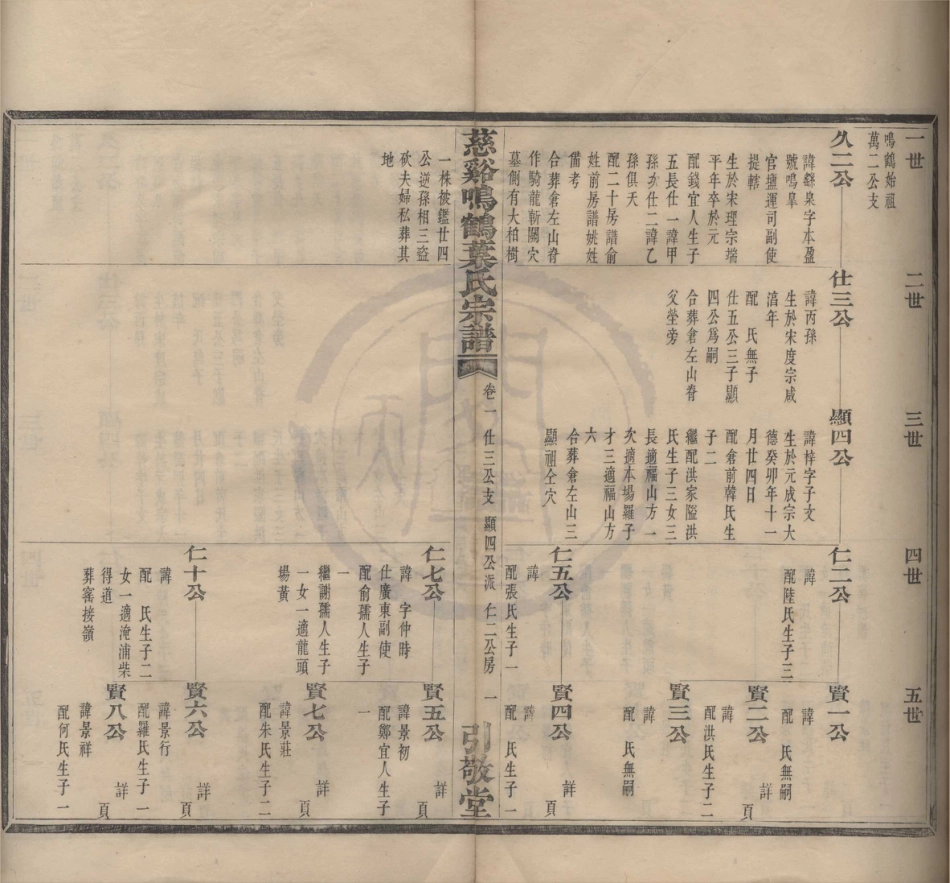 一世
二世
三世
四世
五世
鳴鶴始祖
萬二公支
久二公
諱繇泉字本盈
號鳴皐
官鹽運司副使
提轄
生於宋理宗端
平年卒於元
配錢宜人生子
五長仕一諱甲
孫次仕二諱乙
孫俱夭
配二十房譜俞
姓前房譜姚姓
備考
合葬倉左山脊
作騎龍斬關穴
墓側有大柏樹
一株被鑑廿四
公逆孫相三盜
砍夫婦私葬其
地
仕三公
諱丙孫
生於宋度宗咸
淳年
配 氏無子
仕五公三子顯
四公爲嗣
合葬倉左山脊
父塋旁
顯四公
諱梓字子文
生於元成宗大
德癸卯年十一
月廿四日
配倉前韓氏生
子二
繼配洪家隘洪
氏生子三女三
長適福山方一
次適本場羅子
才三適福山方
六
合葬倉左山三
顯祖仝穴
仁二公
諱
配陸氏生子三
賢一公 詳 頁
諱
配 氏無嗣
賢二公 詳 頁
諱
配洪氏生子二
賢三公 詳 頁
諱
配 氏無嗣
仁五公
諱
配張氏生子一
賢四公 詳 頁
諱
配 氏生子一
慈谿鳴鶴葉氏宗譜
卷一 仕三公支 顯四公派 仁二公房 一
引敬堂
仁七公
諱 字仲時
仕廣東副使
配俞孺人生子
一
繼謝孺人生子
一女一適龍頭
場黃
賢五公 詳 頁
諱景初
配鄭宜人生子
一
賢七公 詳 頁
諱景莊
配朱氏生子二
仁十公
諱
配 氏生子二
女一適淹浦柴
得道
葬窰接嶺
賢六公 詳 頁
諱景行
配羅氏生子一
賢八公 詳 頁
諱景祥
配何氏生子一